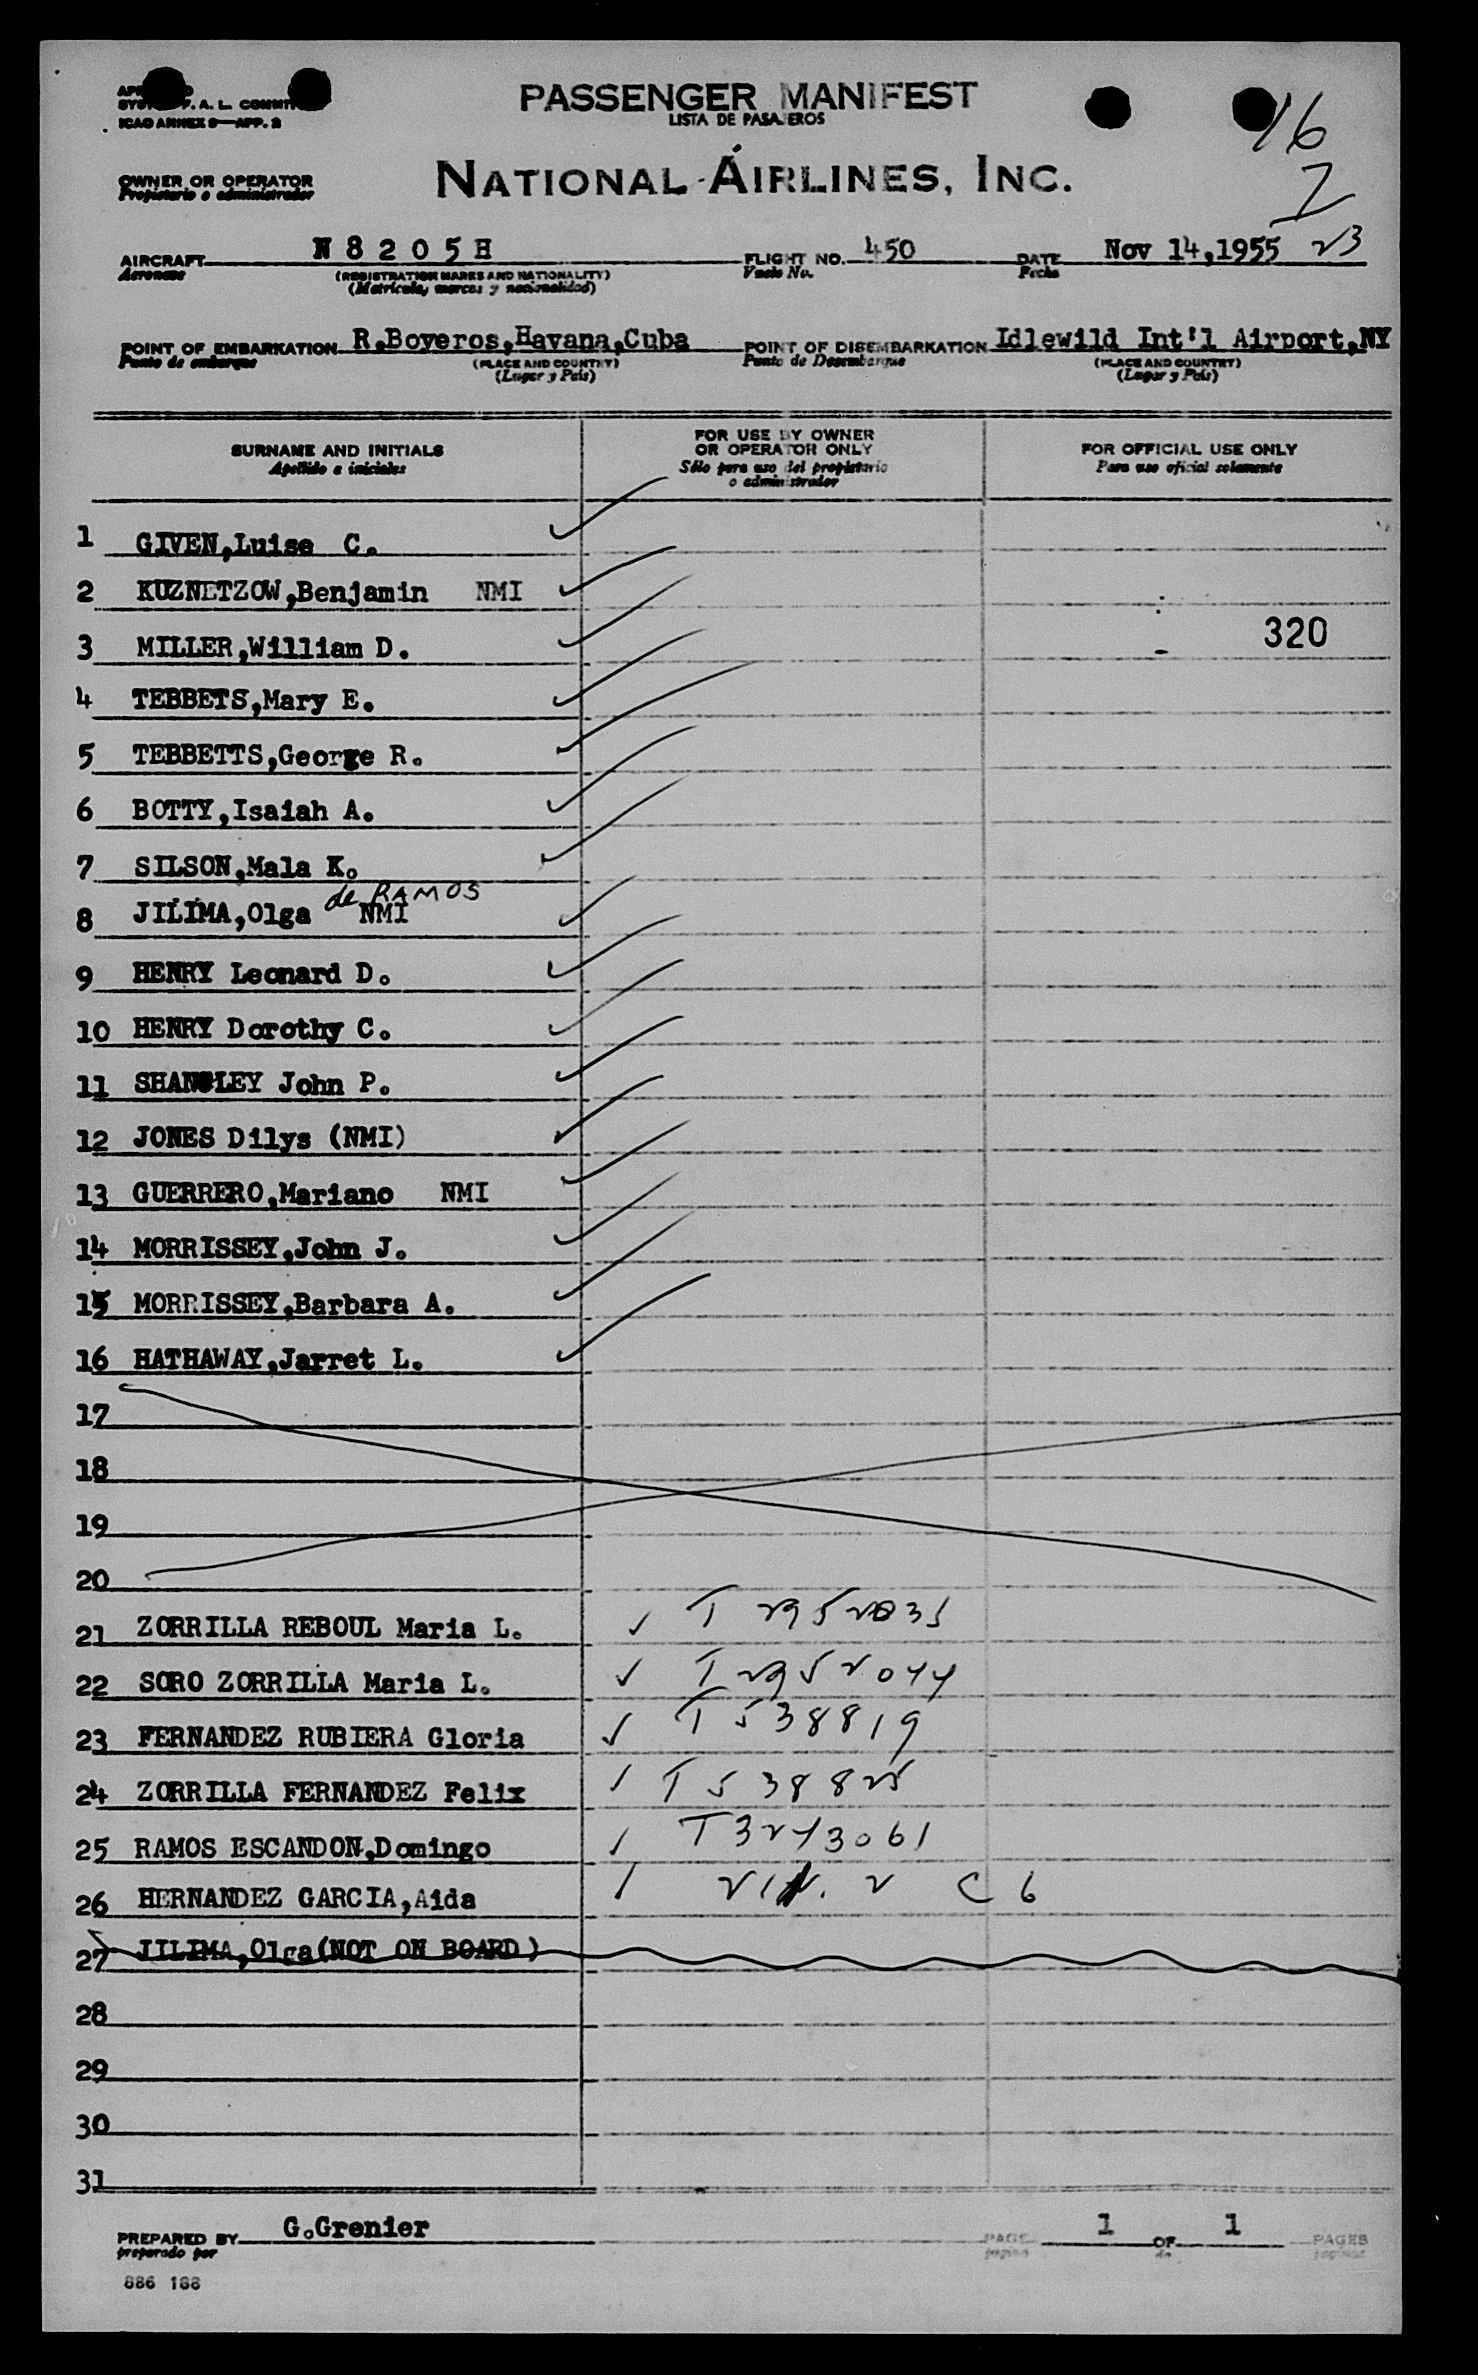 PASSENGER MANIFEST
LISTA DE PASAJEROS
ICAO ANNEX 9—APP. 2
16
2
OWNER OR OPERATOR
Propietario o administrador
NATIONAL AIRLINES, INC.
AIRCRAFT N 8 2 0 5 H FLIGHT NO. 450 DATE Nov 14,1955 23
Aeronave (REGISTRATION MARKS AND NATIONALITY) Vuelo No. Fecha
(Matricula, marcas y nacionalidad)
POINT OF EMBARKATION R.Boyeros,Havana,Cuba POINT OF DISEMBARKATION Idlewild Int'l Airport,NY
Punto de embarque (PLACE AND COUNTRY) Punto de Desembarque (PLACE AND COUNTRY)
(Lugar y País) (Lugar y País)
SURNAME AND INITIALS FOR USE BY OWNER OR OPERATOR ONLY FOR OFFICIAL USE ONLY
Apellido e iniciales Sólo para uso del propietario o administrador Para uso oficial solamente
1 GIVEN,Luise C.
2 KUZNETZOW,Benjamin NMI
3 MILLER,William D. 320
4 TEBBETS,Mary E.
5 TEBBETTS,George R.
6 BOTTY,Isaiah A.
7 SILSON,Mala K.
de RAMOS
8 JILIMA,Olga NMI
9 HENRY Leonard D.
10 HENRY Dorothy C.
11 SHANLEY John P.
12 JONES Dilys (NMI)
13 GUERRERO,Mariano NMI
14 MORRISSEY,John J.
15 MORRISSEY,Barbara A.
16 HATHAWAY,Jarret L.
17
18
19
20
21 ZORRILLA REBOUL Maria L. ✓ T 2952035
22 SORO ZORRILLA Maria L. ✓ T 2952044
23 FERNANDEZ RUBIERA Gloria ✓ T 538819
24 ZORRILLA FERNANDEZ Felix ✓ T 538825
25 RAMOS ESCANDON,Domingo ✓ T3243061
26 HERNANDEZ GARCIA,Aida C 6
27 JILIMA,Olga(NOT ON BOARD)
28
29
30
31
PREPARED BY G.Grenier PAGE 1 OF 1 PAGES
preparado por pagina de paginas
886 188